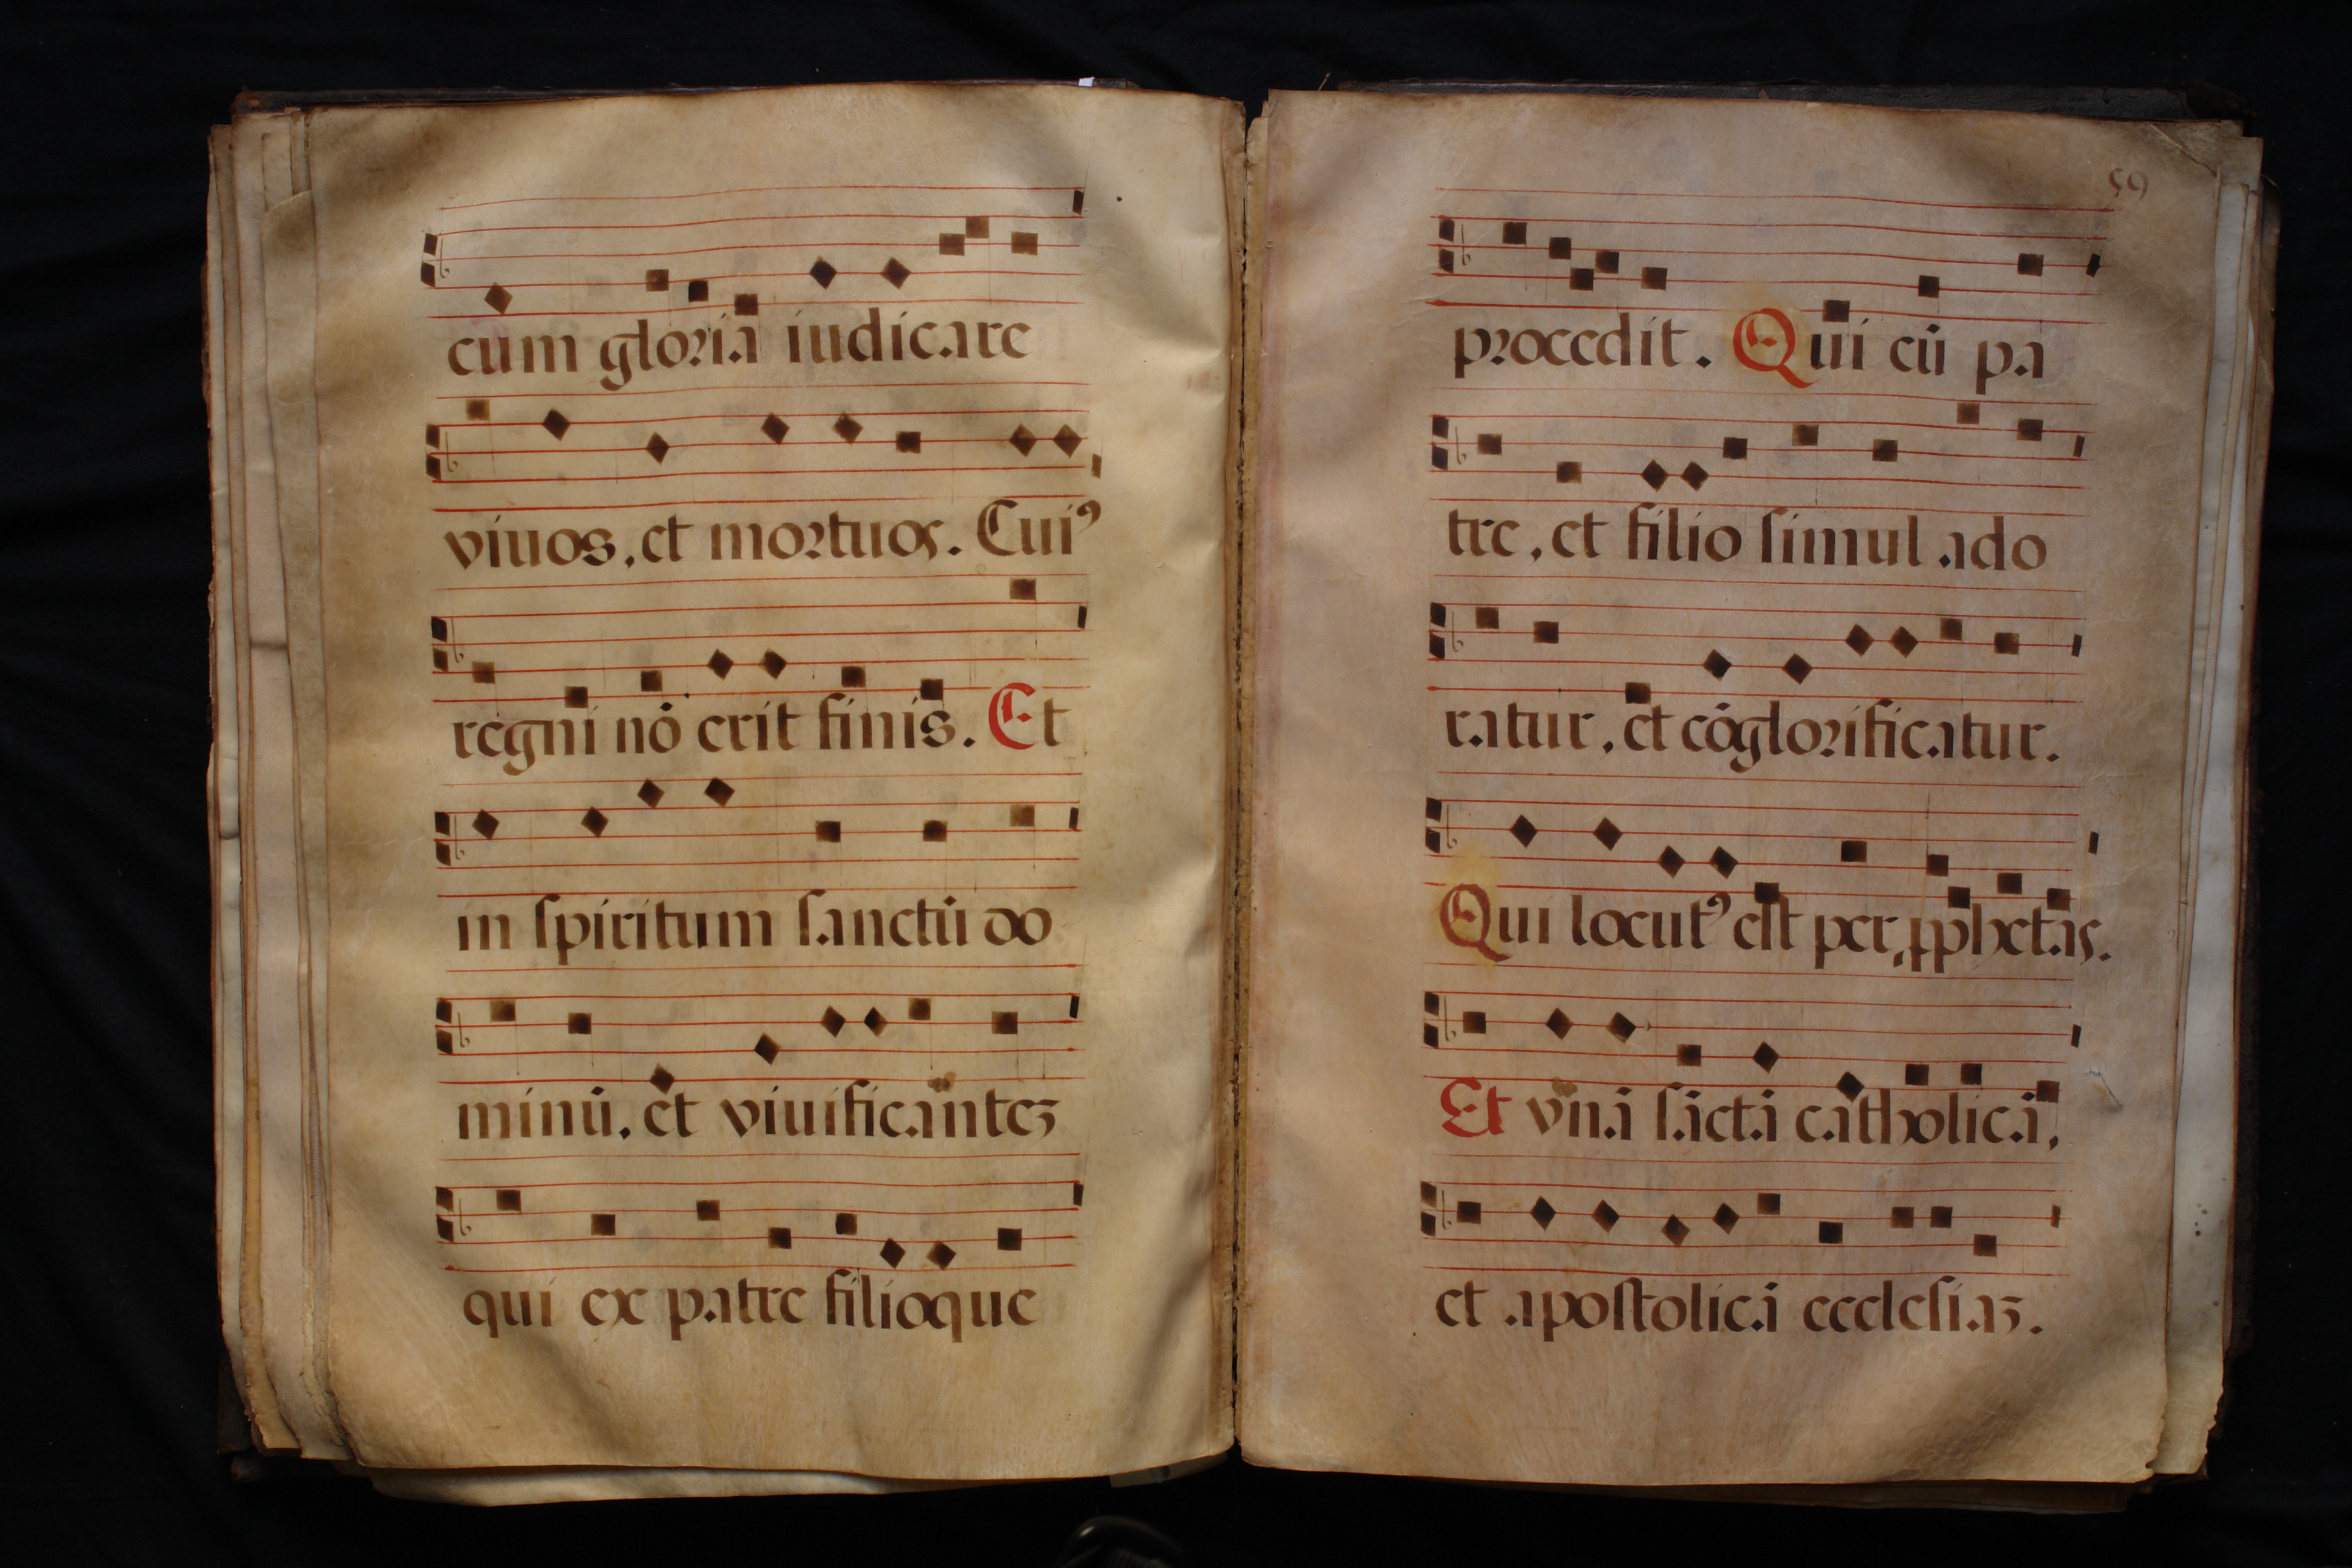 cum gloria iudicare
viuos, et mortuos. Cuiꝰ
regni nō erit finis. Et
in ſpiritum ſanctū do
minū, et viuificantēꝫ
qui ex patre filioque
59
procedit. Qui cū pa
tre, et filio ſimul ado
ratur, et cōglorificatur.
Qui locutꝰ eſt per ꝓphetas.
Et vnā ſāctā catholicā,
et apoſtolicā eccleſiaꝫ.